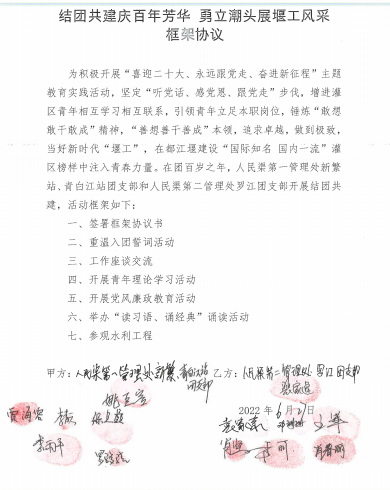 结团共建庆百年芳华 勇立潮头展堰工风采
框架协议
为积极开展“喜迎二十大、永远跟党走、奋进新征程”主题
教育实践活动，坚定“听党话、感党恩、跟党走”步伐，增进灌
区青年相互学习相互联系，引领青年立足本职岗位，锤炼“敢想
敢干敢成”精神，“善想善干善成”本领，追求卓越，做到极致，
当好新时代“堰工”，在都江堰建设“国际知名 国内一流”灌
区榜样中注入青春力量。在团百岁之年，人民渠第一管理处新繁
站、青白江站团支部和人民渠第二管理处罗江团支部开展结团共
建，活动框架如下：
一、签署框架协议书
二、重温入团誓词活动
三、工作座谈交流
四、开展青年理论学习活动
五、开展党风廉政教育活动
六、举办“读习语、诵经典”诵读活动
七、参观水利工程
甲方：人民渠第一管理处新繁、青白江站团支部 乙方：人民渠第二管理处罗江团支部
2022年6月21日